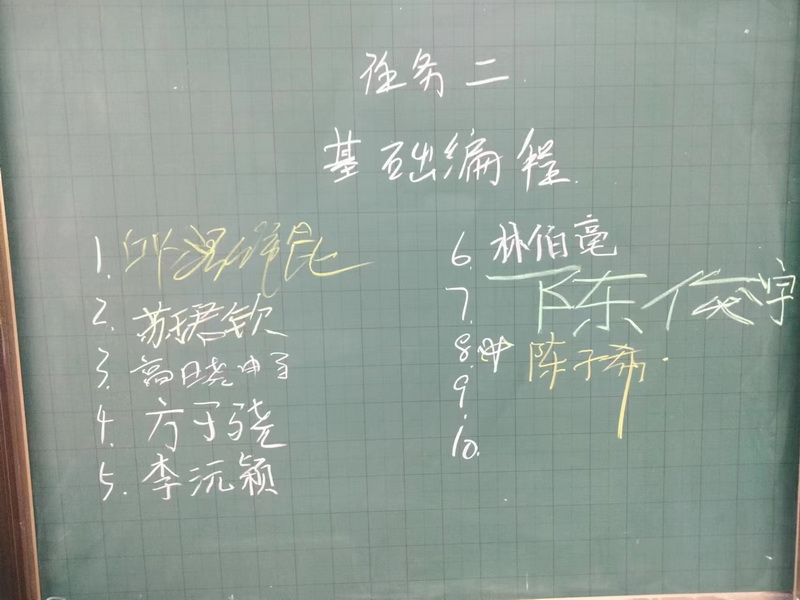 任务二
基础编程
1.
2. 苏珺钦
3. 高晓
4. 方子骁
5. 李沅颖
6. 林伯毫
7. 陈俊宇
8. 陈子希
9.
10.